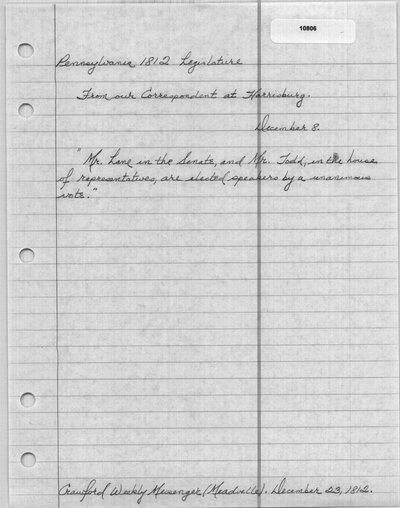 10806
Pennsylvania 1812 Legislature
From our Correspondent at Harrisburg.
December 8.
"Mr. Lane in the Senate, and Mr. Todd, in the house
of representatives, are elected speakers by a unanimous
vote."
Crawford Weekly Messenger (Meadville). December 23, 1812.